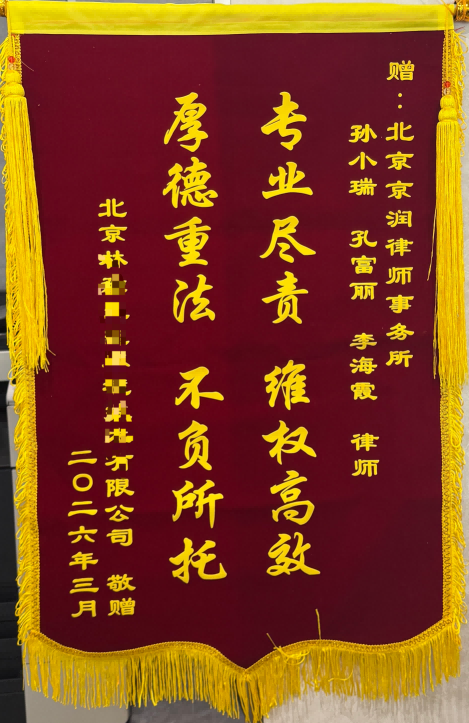 赠：北京京润律师事务所
孙小瑞 孔富丽 李海霞 律师
专业尽责 维权高效
厚德重法 不负所托
北京林有限公司 敬赠
二〇二六年三月